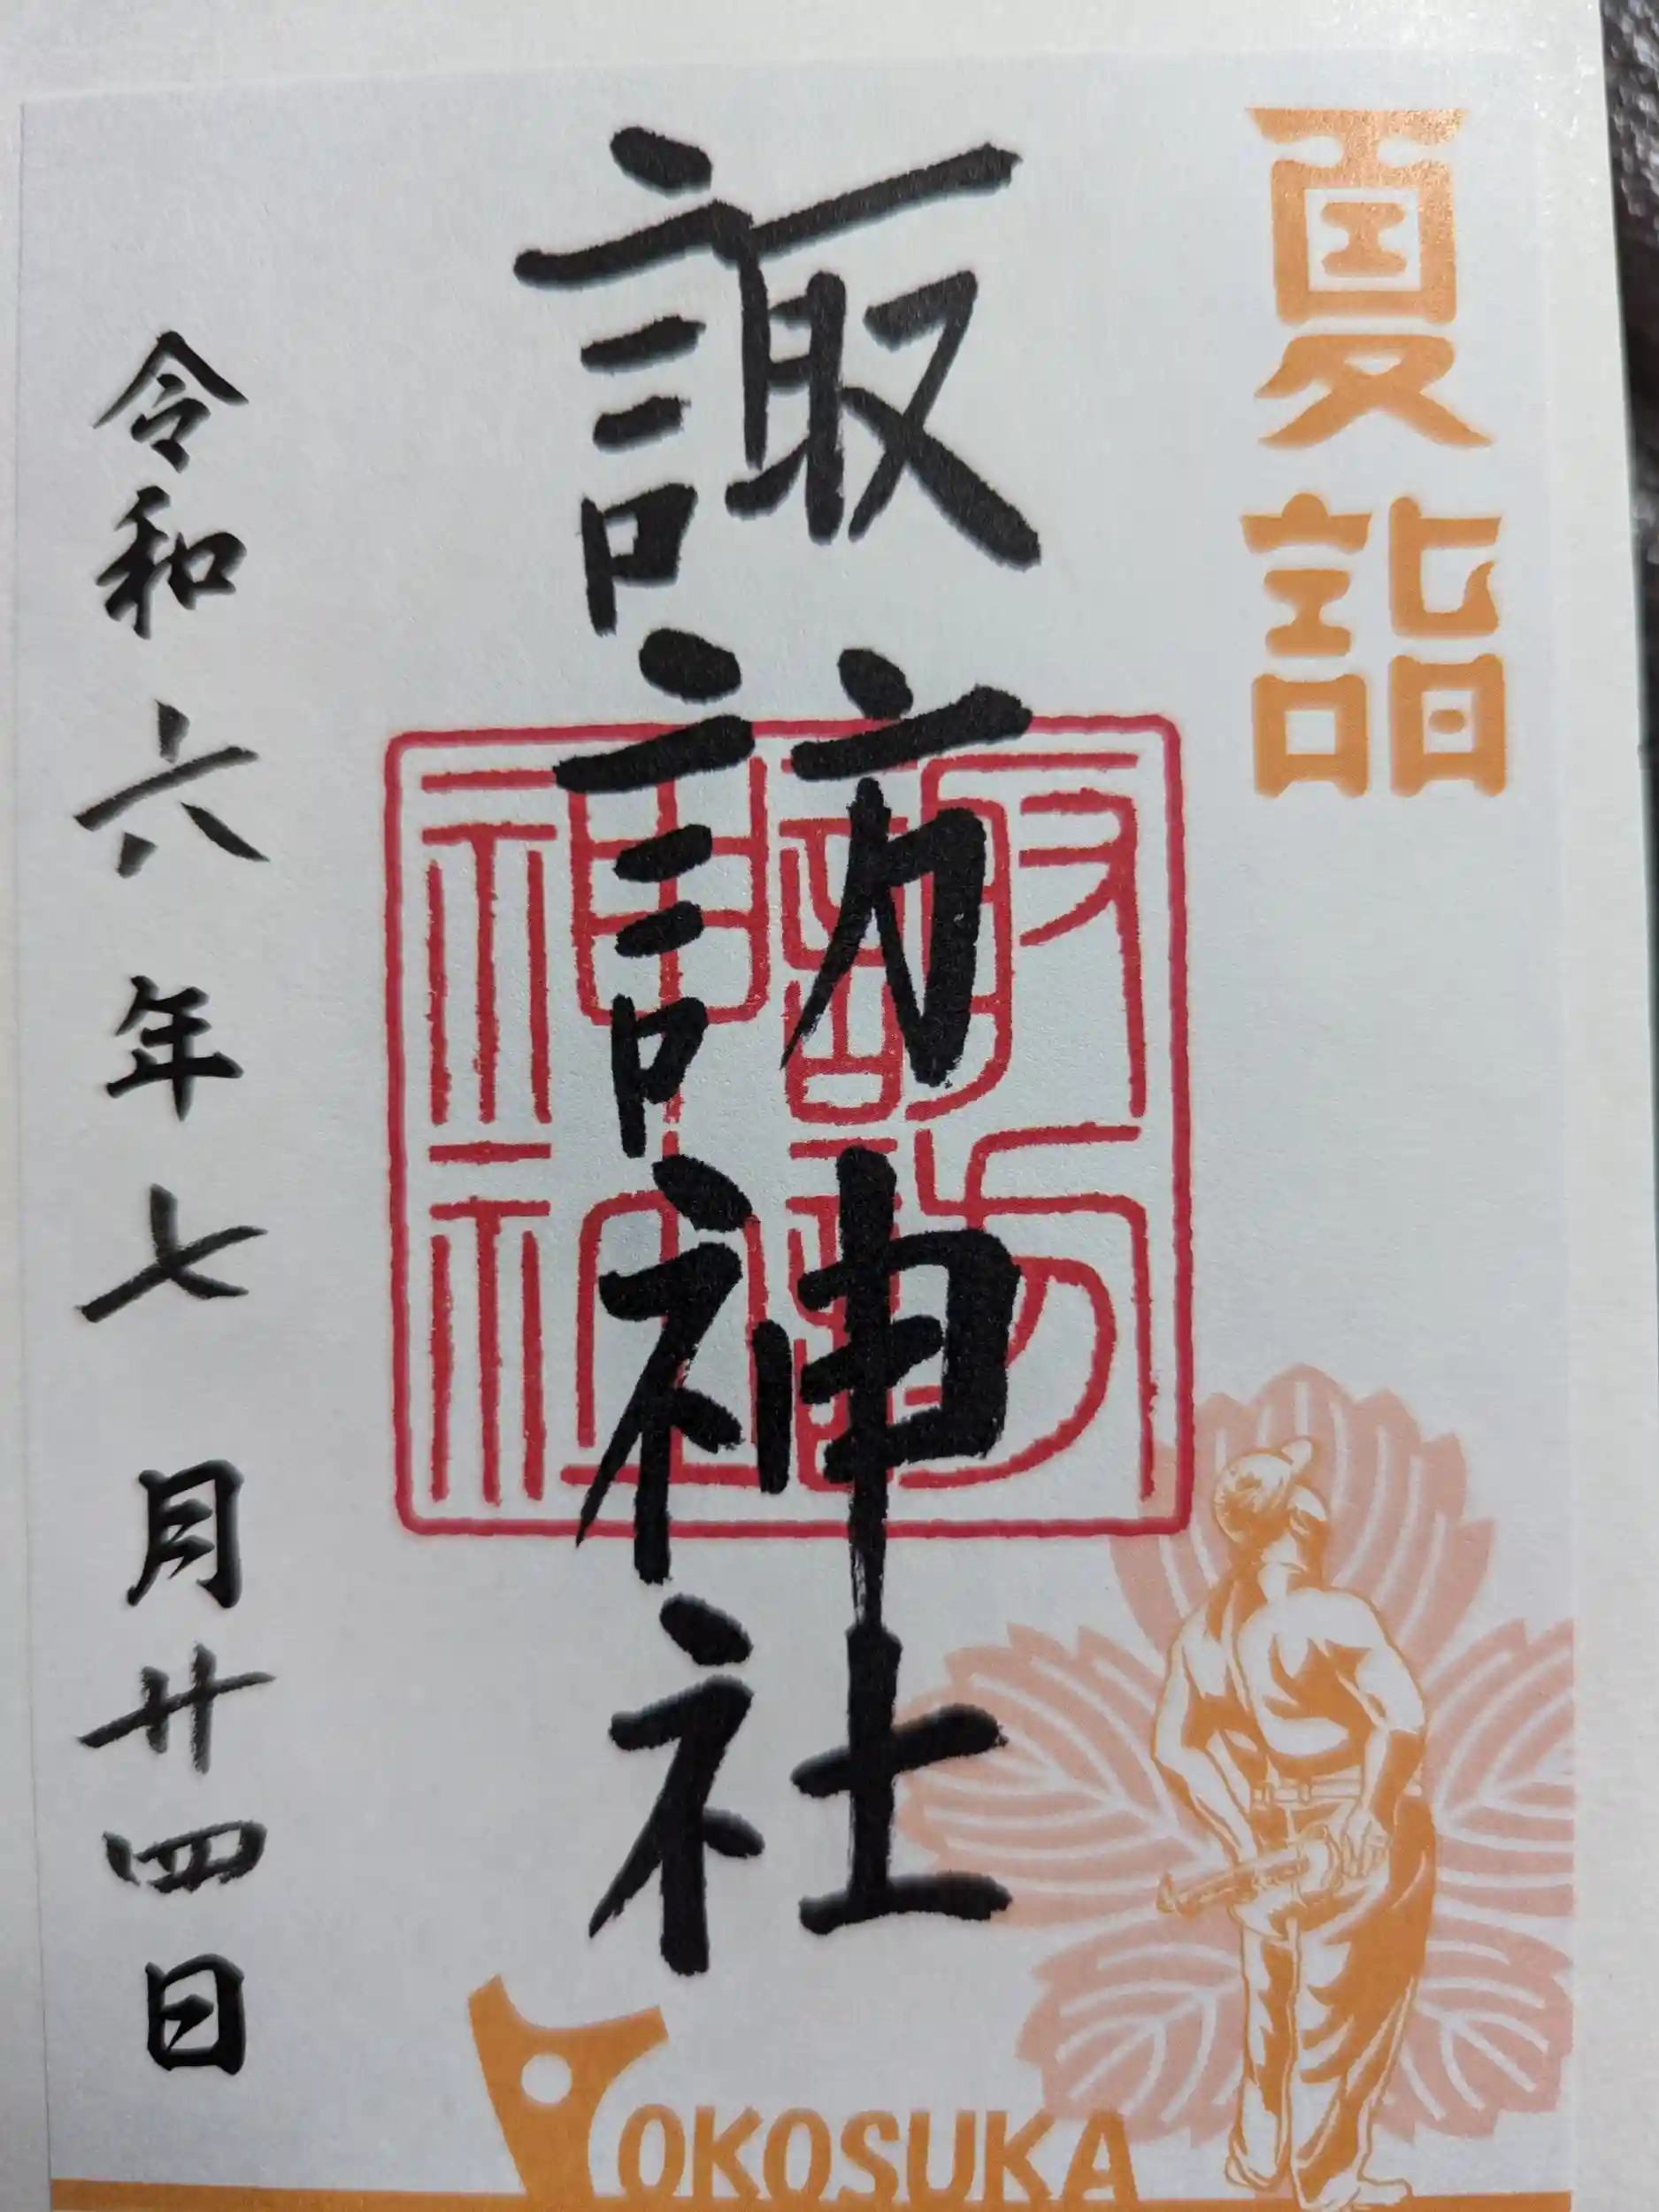 夏詣
諏訪神社
諏訪神社
令和六年七月廿四日
YOKOSUKA